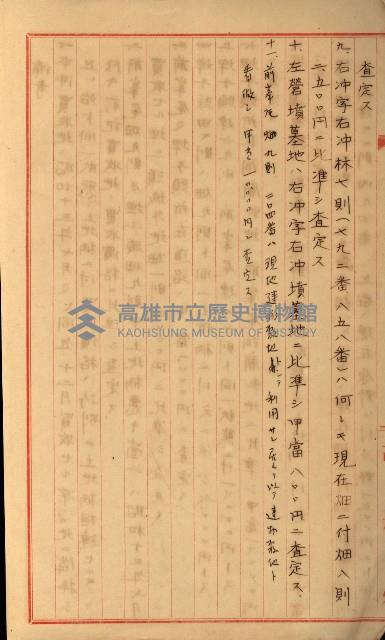 査定ス
九、右冲字右冲林七則(七九二番、八五八番)ハ何レモ現在畑ニ付畑八則
二、五〇〇円ニ比準シ査定ス
十、左營墳墓地ハ右冲字右冲墳墓地ニ比準シ甲當八〇〇円ニ査定ス
十一、前峯尾 畑九則 二〇四番ハ現地建物敷地トシテ利用サレ居ルヲ以テ建物敷地ト
看做シ甲當一、〇〇〇円ニ査定ス
高雄市立歷史博物館
KAOHSIUNG MUSEUM OF HISTORY